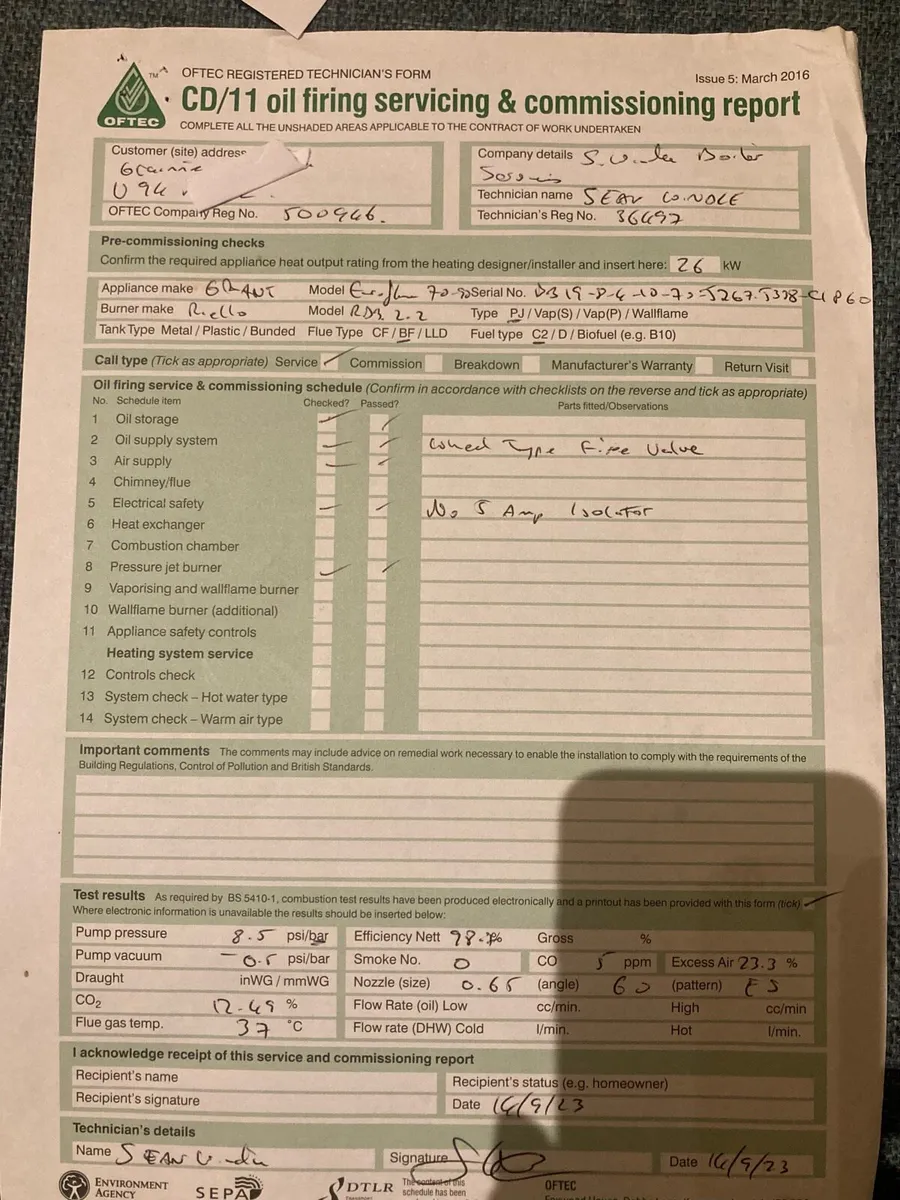 OFTEC REGISTERED TECHNICIAN'S FORM
Issue 5: March 2016
OFTEC
TM
CD/11 oil firing servicing & commissioning report
COMPLETE ALL THE UNSHADED AREAS APPLICABLE TO THE CONTRACT OF WORK UNDERTAKEN
Customer (site) address
OFTEC Company Reg No. 500946.
Company details S. Boiler
Technician name SEAN
Technician's Reg No. 36497
Pre-commissioning checks
Confirm the required appliance heat output rating from the heating designer/installer and insert here: 26 kW
Appliance make GRANT Model 70-90 Serial No.
Burner make Riello Model RDB 2.2 Type PJ / Vap(S) / Vap(P) / Wallflame
Tank Type Metal / Plastic / Bunded Flue Type CF / BF / LLD Fuel type C2 / D / Biofuel (e.g. B10)
Call type (Tick as appropriate) Service Commission Breakdown Manufacturer's Warranty Return Visit
Oil firing service & commissioning schedule (Confirm in accordance with checklists on the reverse and tick as appropriate)
No. Schedule item Checked? Passed? Parts fitted/Observations
1 Oil storage
2 Oil supply system Type Fire Valve
3 Air supply
4 Chimney/flue
5 Electrical safety No 5 Amp Isolator
6 Heat exchanger
7 Combustion chamber
8 Pressure jet burner
9 Vaporising and wallflame burner
10 Wallflame burner (additional)
11 Appliance safety controls
Heating system service
12 Controls check
13 System check – Hot water type
14 System check – Warm air type
Important comments The comments may include advice on remedial work necessary to enable the installation to comply with the requirements of the
Building Regulations, Control of Pollution and British Standards.
Test results As required by BS 5410-1, combustion test results have been produced electronically and a printout has been provided with this form (tick)
Where electronic information is unavailable the results should be inserted below:
Pump pressure 8.5 psi/bar Efficiency Nett 98. % Gross %
Pump vacuum -0.5 psi/bar Smoke No. 0 CO 5 ppm Excess Air 23.3 %
Draught inWG / mmWG Nozzle (size) 0.65 (angle) 60 (pattern) ES
CO2 12.49 % Flow Rate (oil) Low cc/min. High cc/min
Flue gas temp. 37 °C Flow rate (DHW) Cold l/min. Hot l/min.
I acknowledge receipt of this service and commissioning report
Recipient's name
Recipient's status (e.g. homeowner)
Recipient's signature
Date 14/9/23
Technician's details
Name SEAN
Signature
Date 14/9/23
ENVIRONMENT
AGENCY
SEPA
DTLR
The content of this
schedule has been
OFTEC